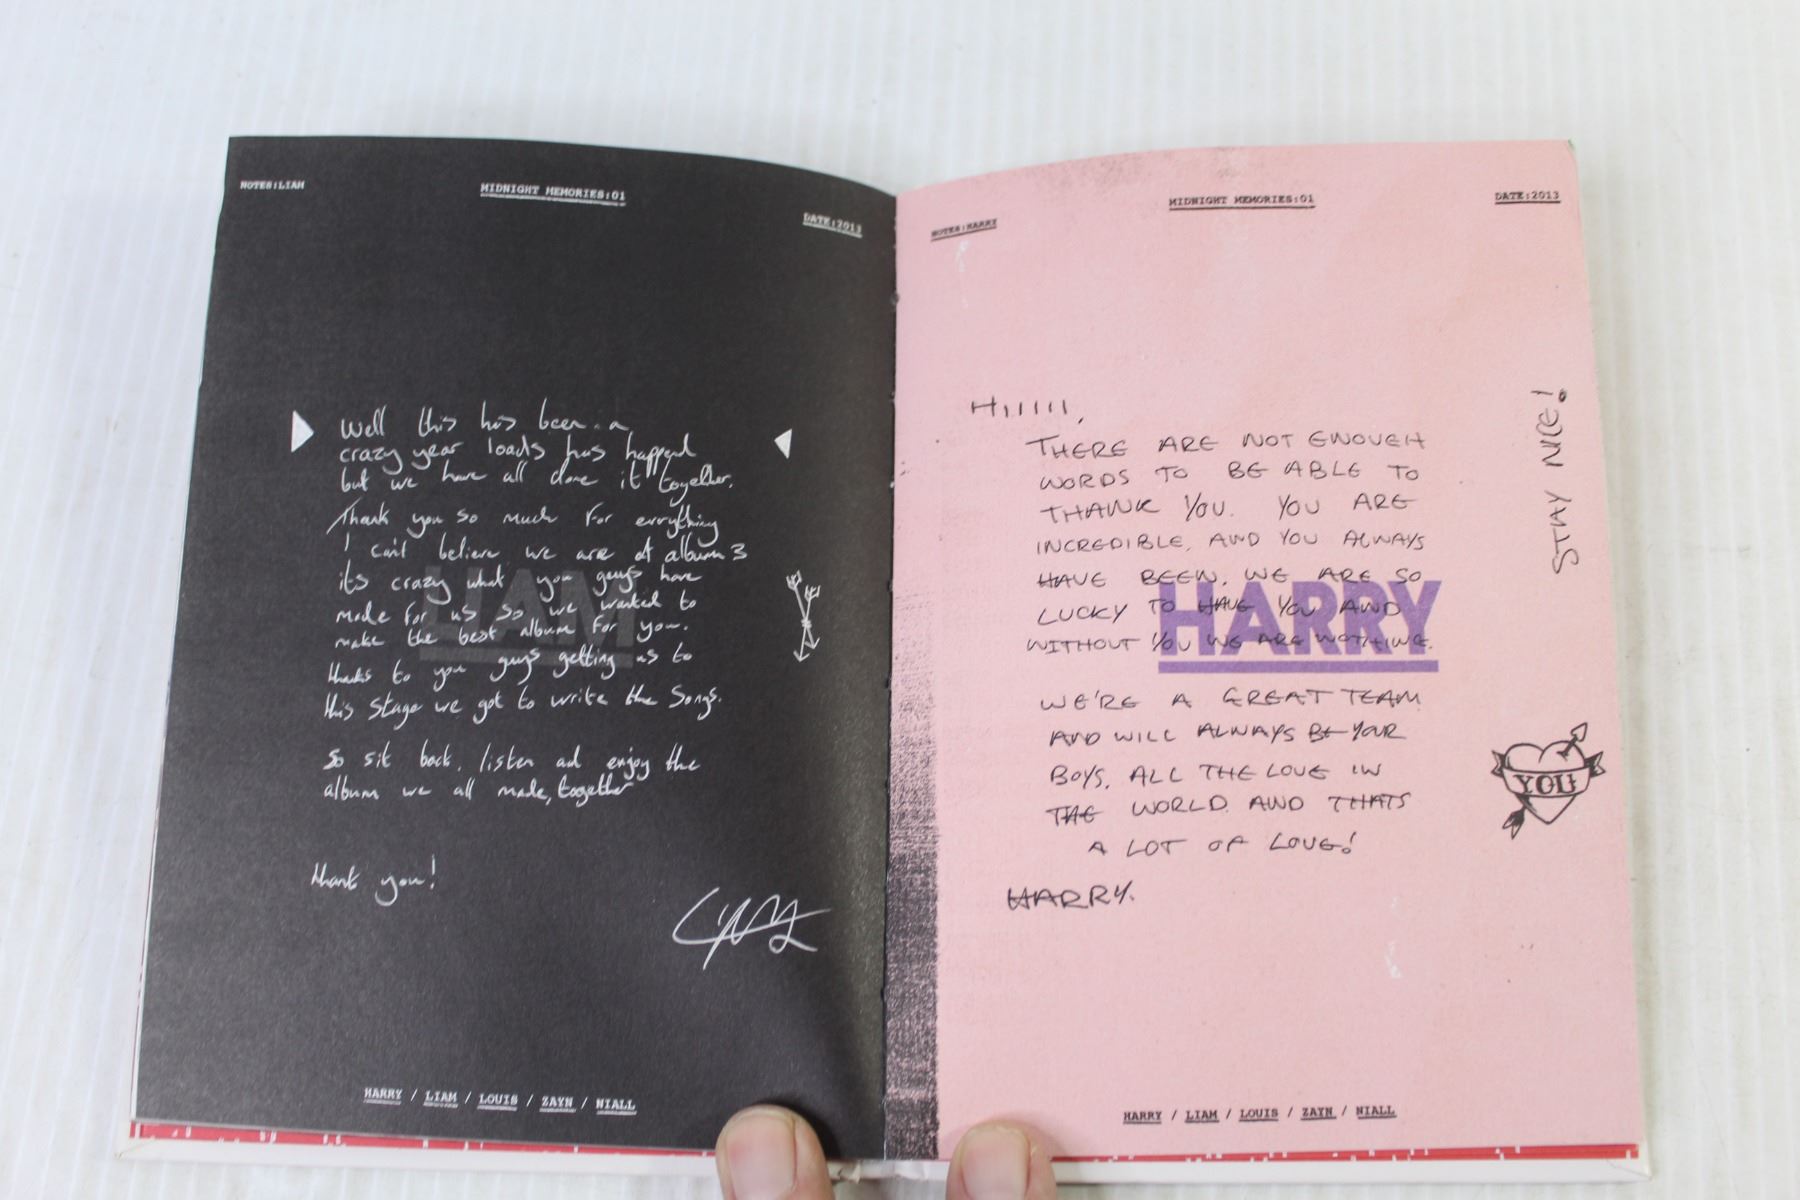 NOTES:LIAM
MIDNIGHT MEMORIES:01
DATE:2013
Well this has been a
crazy year loads has happend
but we have all done it together.
Thank you so much for everything
I can't believe we are at album 3
its crazy what you guys have
made for us so we wanted to
make the best album for you.
thanks to you guys getting us to
this stage we got to write the songs.
So sit back, listen and enjoy the
album we all made, together
thank you!
LIAM
HARRY / LIAM / LOUIS / ZAYN / NIALL
NOTES:HARRY
MIDNIGHT MEMORIES:01
DATE:2013
HIIIIII,
THERE ARE NOT ENOUGH
WORDS TO BE ABLE TO
THANK YOU. YOU ARE
INCREDIBLE, AND YOU ALWAYS
HAVE BEEN. WE ARE SO
LUCKY TO HAVE YOU AND
WITHOUT YOU WE ARE NOTHING.
HARRY
WE'RE A GREAT TEAM
AND WILL ALWAYS BE YOUR
BOYS. ALL THE LOVE IN
THE WORLD. AND THATS
A LOT OF LOVE!
HARRY.
STAY NICE!
YOU
HARRY / LIAM / LOUIS / ZAYN / NIALL